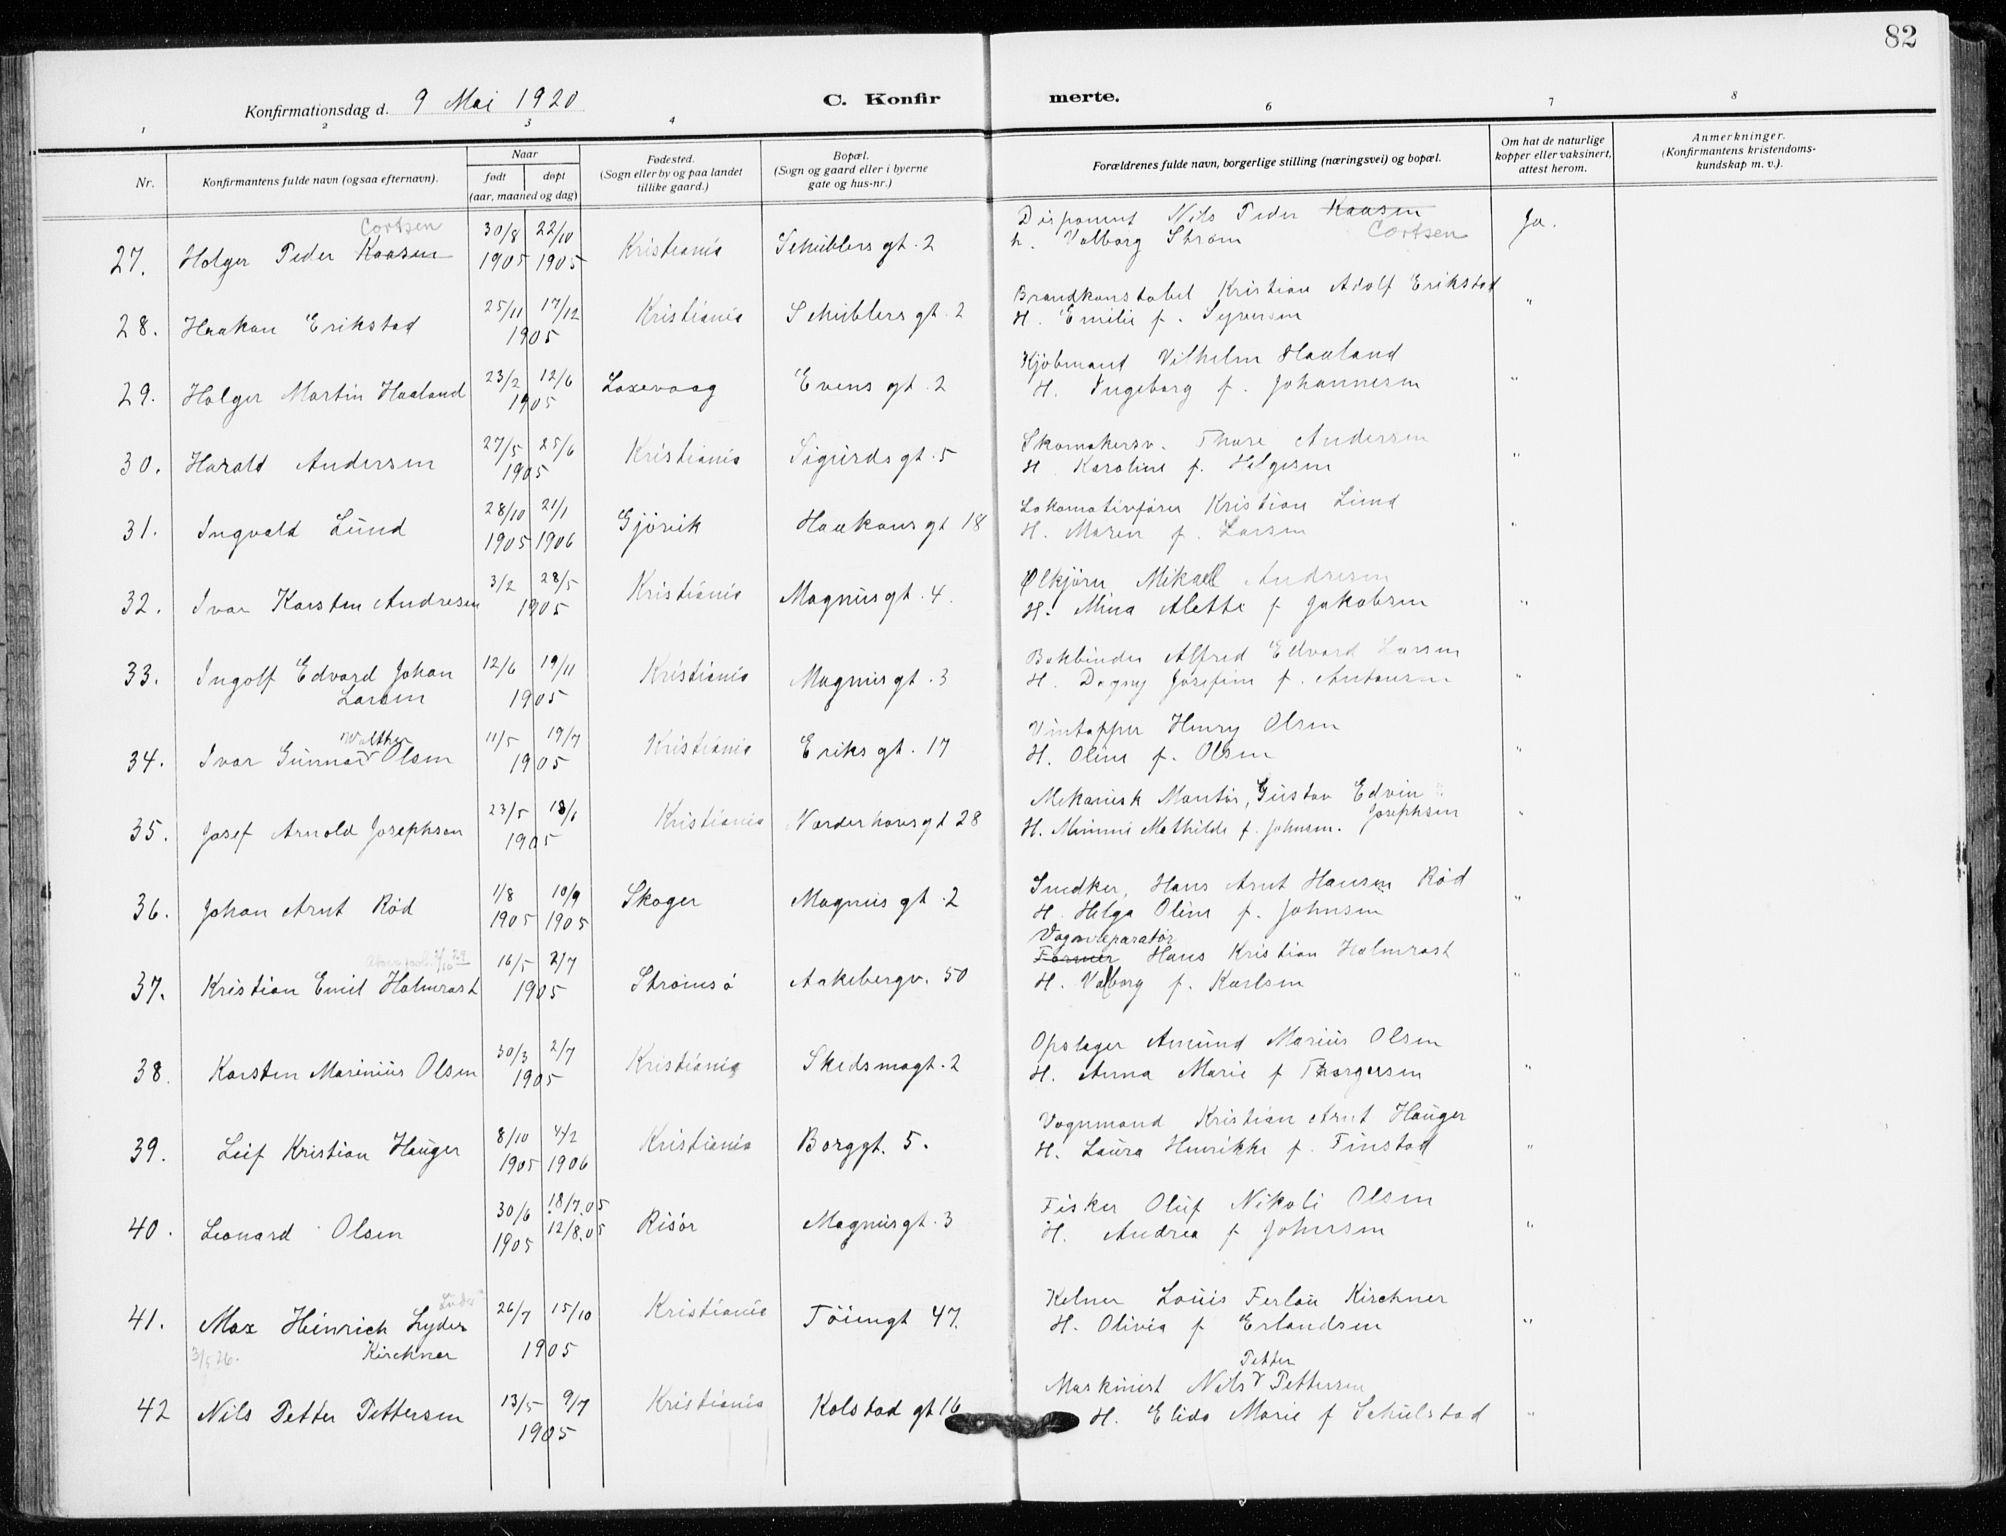 82
Konfirmationsdag d. 9 Mai 1920
C. Konfirmerte.
1 2 3 4 6 7 8
Nr.
Konfirmantens fulde navn (ogsaa efternavn).
Naar
født døpt
(aar, maaned og dag)
Fødested.
(Sogn eller by og paa landet
tillike gaard.)
Bopæl.
(Sogn og gaard eller i byerne
gate og hus-nr.)
Forældrenes fulde navn, borgerlige stilling (næringsvei) og bopæl.
Om hat de naturlige
kopper eller vaksinert,
attest herom.
Anmerkninger.
(Konfirmantens kristendoms-
kundskap m. v.).
Cortsen
27. Holger Peder Kaasen 30/8 1905 22/10 1905 Kristiania Schüblers gt. 2 Disponent Nils Peder Kaasen Cortsen Ja.
h. Valborg Strøm
28. Haakon Erikstad 25/11 17/12 1905 Kristiania Schüblers gt. 2 Brandkonstabel Kristian Adolf Erikstad "
H. Emilie f. Syversen
29. Holger Martin Haaland 23/2 12/6 1905 Laxevaag Evens gt. 2 Kjøbmand Vilhelm Haaland "
H. Ingeborg f. Johannesen
30. Harald Andersen 27/5 25/6 1905 Kristiania Sigurds gt. 5 Skomakersv. Thore Andersen "
H. Karoline f. Helgesen
31. Ingvald Lund 28/10 1905 21/1 1906 Gjøvik Haakons gt 18 Lokomotivfører Kristian Lund "
H. Maren f. Larsen
32. Ivar Karsten Andresen 3/2 28/5 1905 Kristiania Magnus gt. 4. Ølkjører Mikael Andresen "
H. Mina Alette f Jakobsen
33. Ingolf Edvard Johan Larsen 12/6 19/11 1905 Kristiania Magnus gt. 3 Bokbinder Alfred Edvard Larsen "
H. Dagny Josefine f. Antonsen
Walther
34. Ivar Gunnar Olsen 11/5 19/7 1905 Kristiania Eriks gt. 17 Vintapper Henry Olsen "
H. Oline f. Olsen
35. Josef Arnold Josephson 23/5 18/6 1905 Kristiania Norderhovsgt 28 Mekanisk Montør, Gustav Edvin Josephsen "
H. Mimmi Mathilde f. Johnsen.
36. Johan Arnt Rød 1/8 1905 10/9 1905 Skoger Magnus gt. 2 Snedker, Hans Arnt Hansen Rød "
H. Helga Oline f. Johnsen
Vognreparatør
37. Kristian Emil Holmrast 16/5 2/7 1905 Strømsø Aakebergv. 50 Former Hans Kristian Holmrast "
H. Valborg f. Karlsen
38. Karsten Marinius Olsen 30/3 2/7 1905 Kristiania Skedsmogt. 2 Opslager Amund Marius Olsen "
H. Anna Marie f Thorgersen
39. Leif Kristian Hauger 8/10 1905 4/2 1906 Kristiania Borggt. 5. Vognmand Kristian Arnt Hauger "
H. Laura Henrikke f. Finstad
40. Leonard Olsen 30/6 1905 18/7.05 12/8.05 Risør Magnus gt. 3 Fisker Oluf Nikoli Olsen "
H. Andrea f Johnsen
41. Max Heinrich Lyder Kirchner 26/7 15/10 1905 Kristiania Tøiengt 47. Kelner Louis Ferlou Kirchner "
3/5 26.
H. Olivia f Erlandsen
Petter
42 Nils Petter Pettersen 13/5 9/7 1905 Kristiania Kolstad gt 16 Maskinist Nils Pettersen "
H. Elida Marie f Schulstad